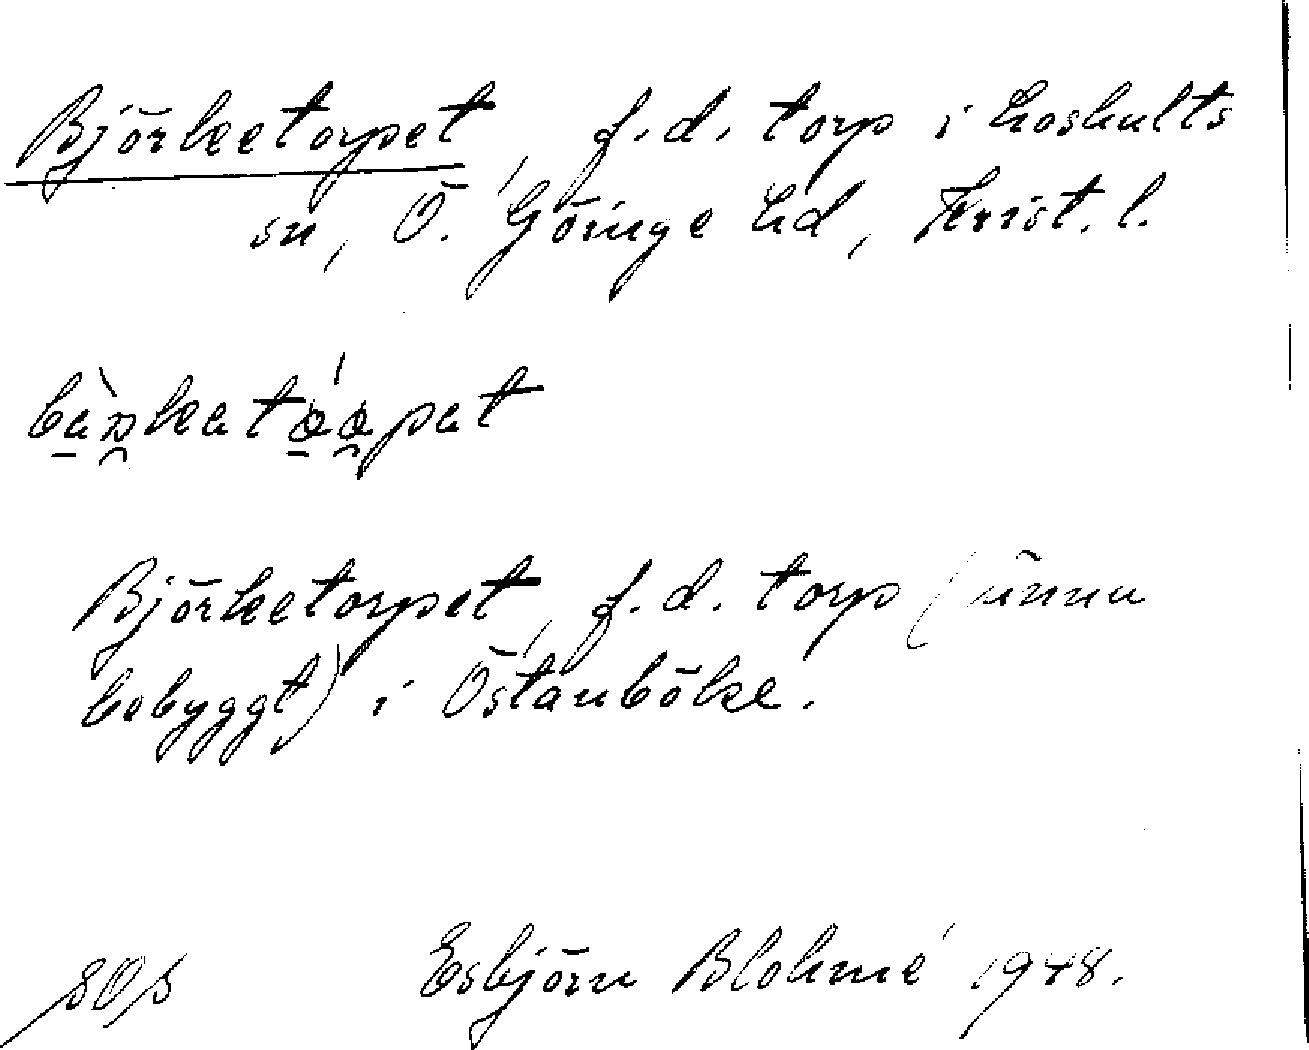 Björketorpet, f.d. torp i Loshults
sn, Ö. Göinge hd, Krist. l.
Björketorpet, f.d. torp (ännu
bebyggt) i Östanböke.
Esbjörn Blohmé 1948.